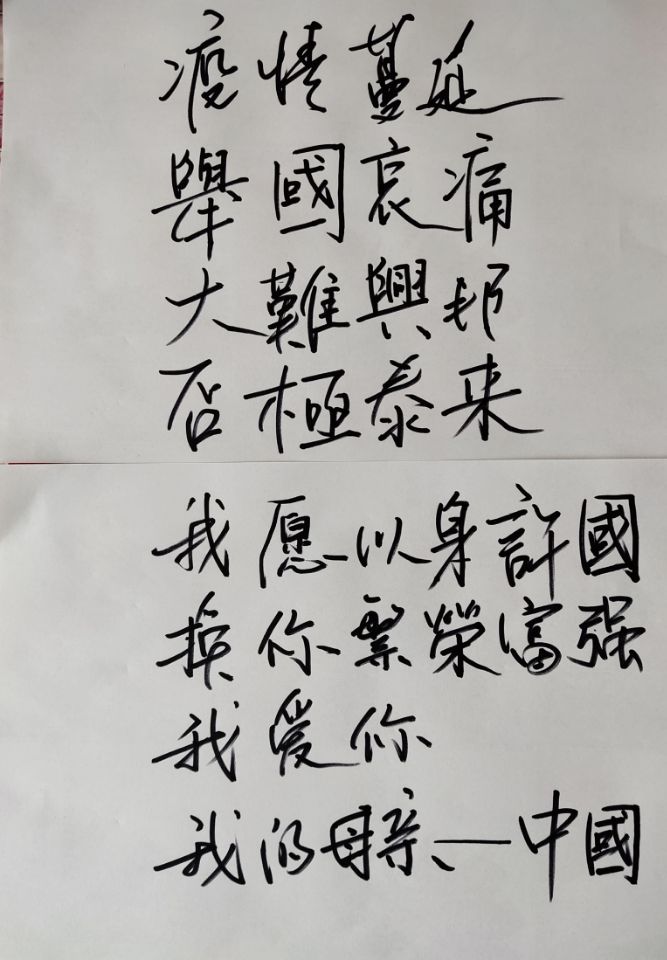 疫情蔓延
舉國哀痛
大難興邦
否極泰来
我愿以身許國
换你繁榮富强
我爱你
我的母亲、—中國